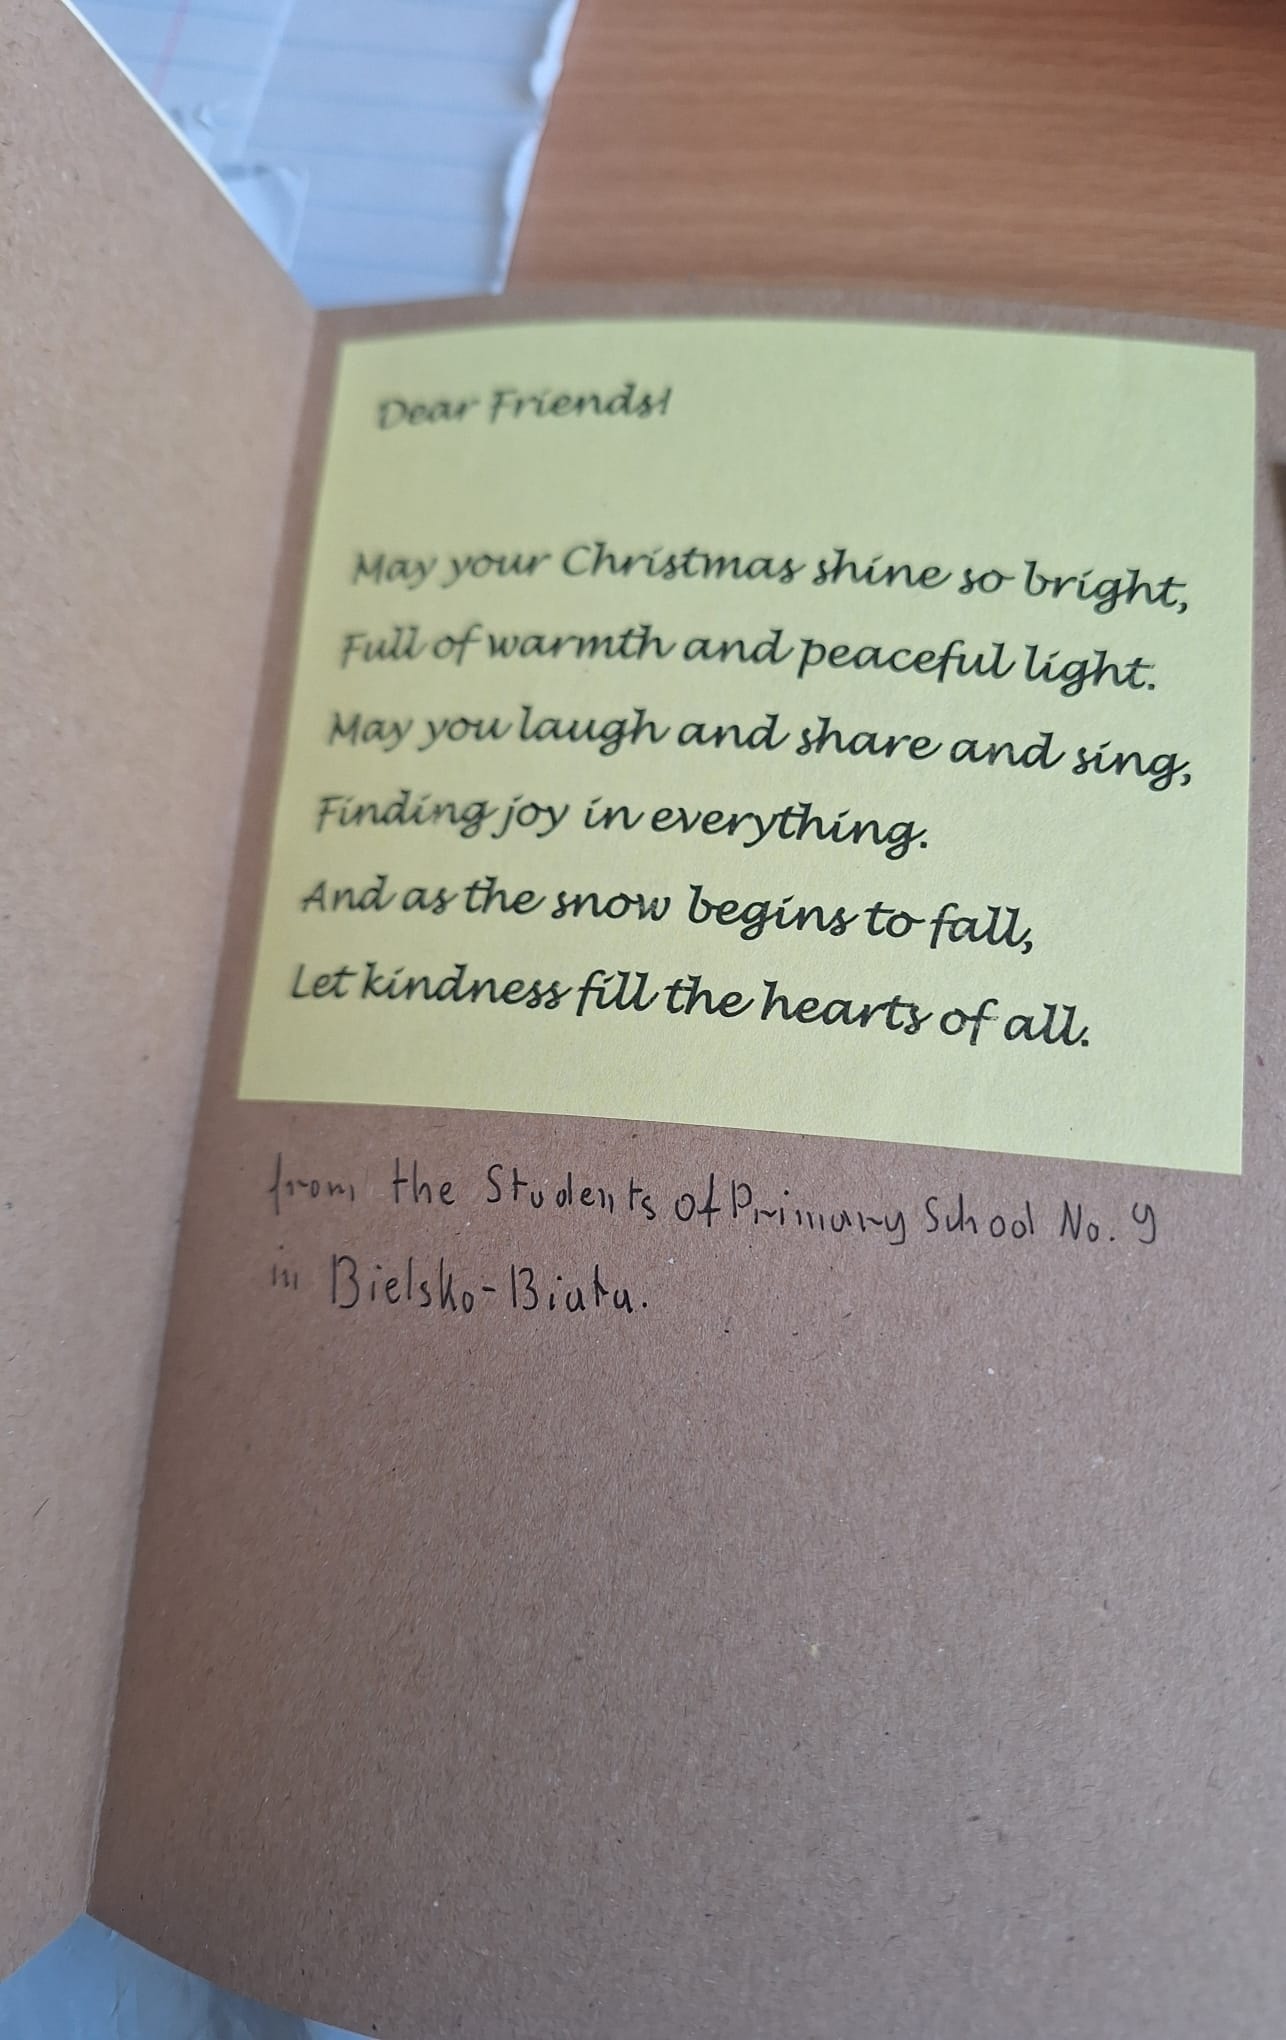 Dear Friends!
May your Christmas shine so bright,
Full of warmth and peaceful light.
May you laugh and share and sing,
Finding joy in everything.
And as the snow begins to fall,
Let kindness fill the hearts of all.
from the Students of Primary School No. 9
in Bielsko-Biała.